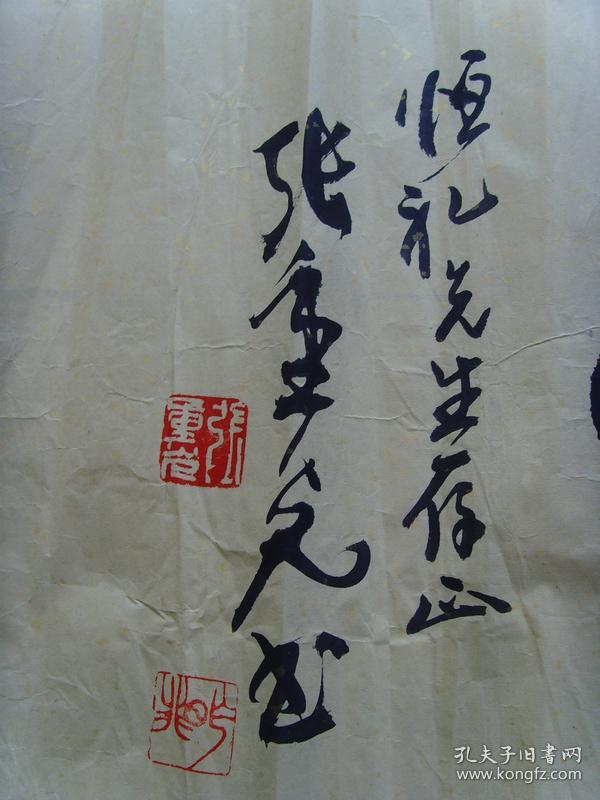 恒礼先生存正
张重光书
張重光
孔夫子旧书网
www.kongfz.com